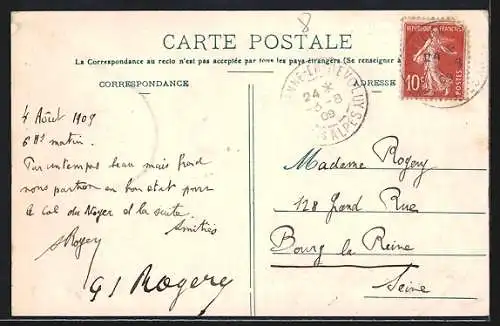 8
CARTE POSTALE
La Correspondance au recto n'est pas acceptée par tous les pays étrangers (Se renseigner à
CORRESPONDANCE
ADRESSE
REPUBLIQUE FRANÇAISE
10
POSTES
24
3-8
09
ALPES
4 Août 1909
6 Hs matin.
Par un temps beau mais froid
nous partons en bon état pour
le col du Noyer et la suite.
Amitiés
Rogery
Rogery
Madame Rogery
128 Grand Rue
Bourg la Reine
Seine